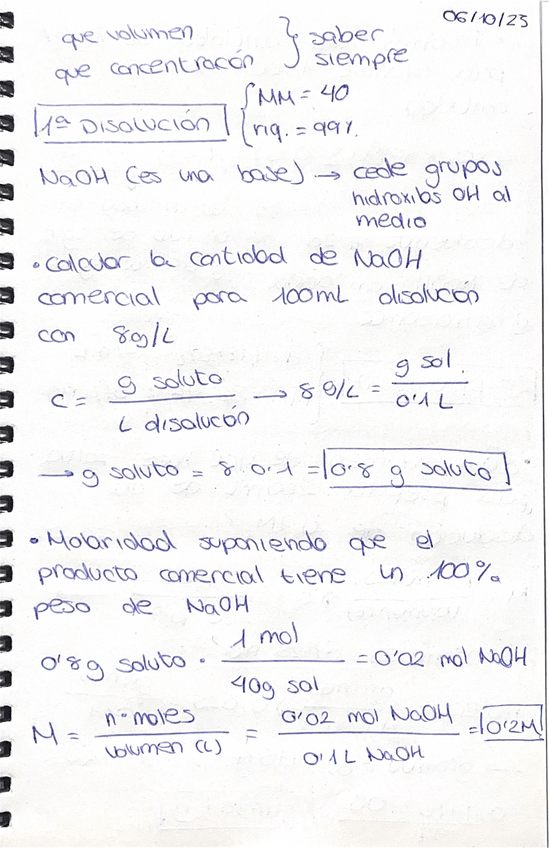 06/10/23
que volumen
que concentracón } saber siempre
1ª DISOLUCIÓN { MM = 40
riq. = 99%.
NaOH (es una base) → cede grupos
hidroxibs OH al
medio
• Calcular la cantidad de NaOH
comercial para 100mL disolucón
con 8g/L
C = g soluto / L disolucón → 8 g/L = g sol. / 0'1 L
→ g soluto = 8 · 0.1 = 0'8 g soluto
• Molaridad suponiendo que el
producto comercial tiene un 100%
peso de NaOH
0'8g soluto · 1 mol / 40g sol = 0'02 mol NaOH
M = nº moles / volumen (L) = 0'02 mol NaOH / 0'1L NaOH = 0'2M